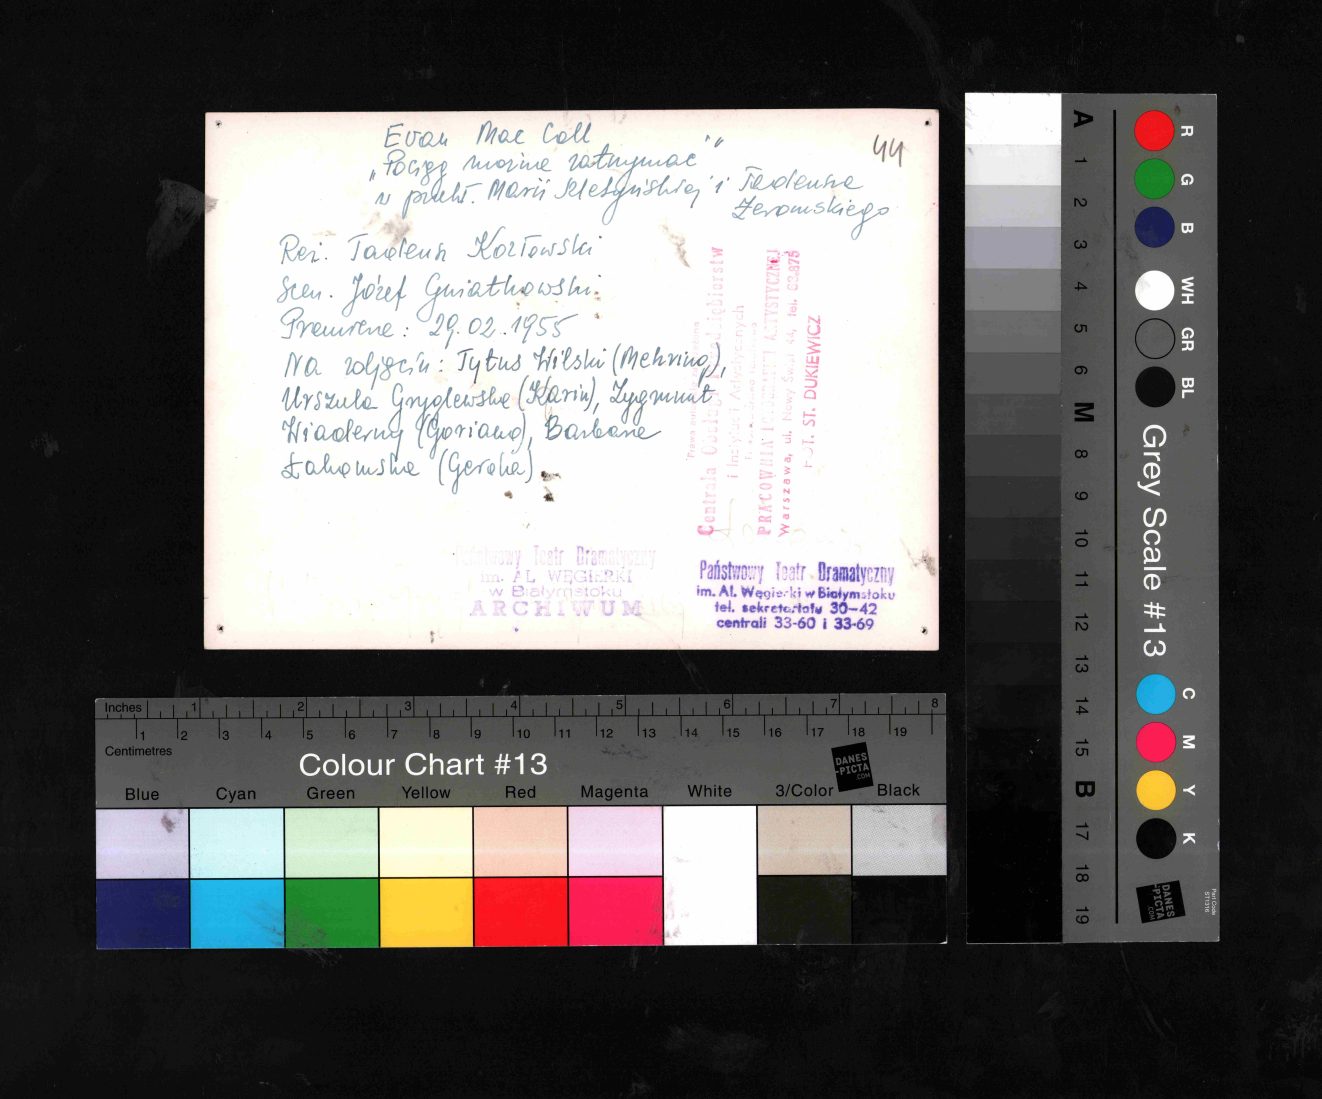 Evan Mac Coll
„Pociąg można zatrzymać”
w przekł. Marii i Tadeusza
Żeromskiego
44
Reż. Tadeusz Kozłowski
Scen. Józef Gniatkowski
Premiera: 29.02.1955
Na zdjęciu: Tytus Wilski (Mehring),
Urszula Gryglewska (Karin), Zygmunt
Wiaderny (Goriano), Barbara
Łakomska (Gerda)
Centrala Obsługi Przedsiębiorstw
i Instytucji Artystycznych
PRACOWNIA FOTOGRAFII ARTYSTYCZNEJ
Warszawa, ul. Nowy Świat 44, tel.
FOT. ST. DUKIEWICZ
Państwowy Teatr Dramatyczny
im. AL. WĘGIERKI
w Białymstoku
ARCHIWUM
Państwowy Teatr Dramatyczny
im. Al. Węgierki w Białymstoku
tel. sekretariatu 30-42
centrali 33-60 i 33-69
Inches 1 2 3 4 5 6 7 8
1 2 3 4 5 6 7 8 9 10 11 12 13 14 15 16 17 18 19
Centimetres
Colour Chart #13
DANES
-PICTA
.COM
Blue Cyan Green Yellow Red Magenta White 3/Color Black
A 1 2 3 4 5 6 M 8 9 10 11 12 13 14 15 B 17 18 19
R G B WH GR BL
Grey Scale #13
C M Y K
DANES
-PICTA
.COM
Part Code
ST1316